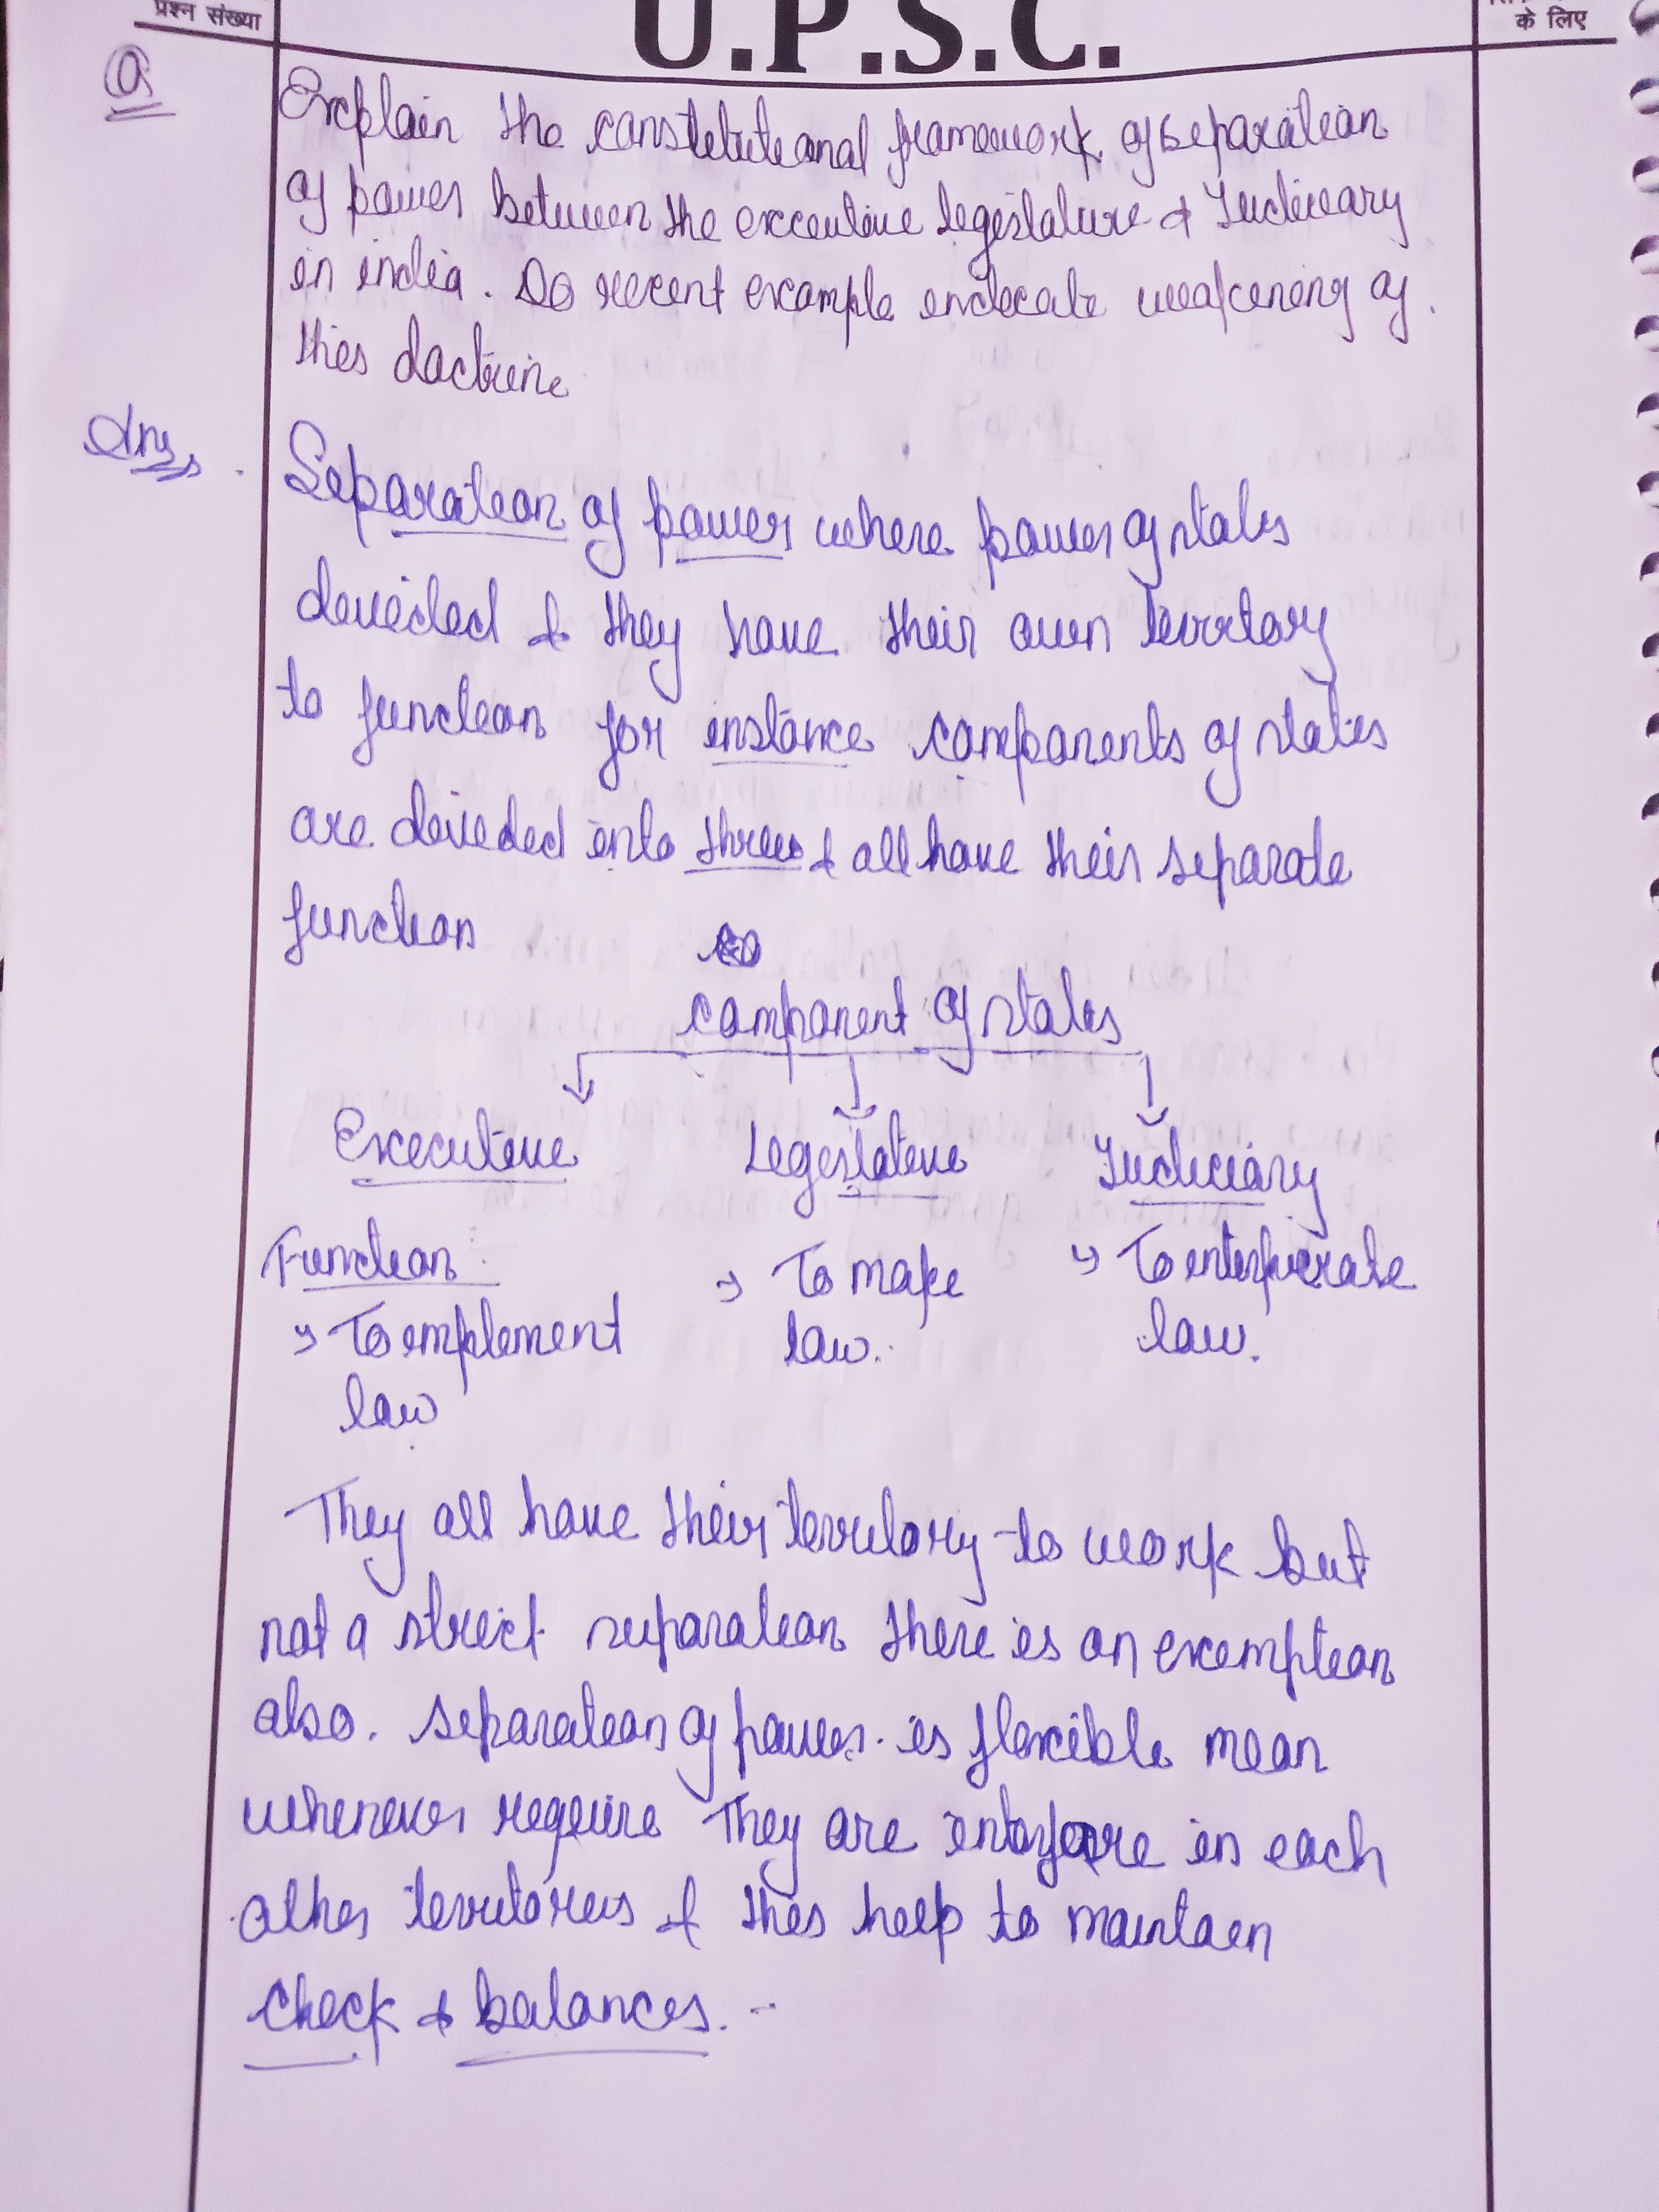 प्रश्न संख्या
U.P.S.C.
के लिए
Q
Explain the constitutional framework of separation
of power between the executive legislature & Judiciary
in india. Do recent example indicate weakening of
this doctrine
Ans
Separation of power where power of states
devided & they have their own territory
to function for instance components of states
are devided into three & all have their separate
function
component of states
Executive Legislative Judiciary
Function :
→ To implement law
→ To make law.
→ To interpretate law.
They all have their territory to work but
not a strict separation there is an exemption
also. separation of power is flexible mean
whenever require They are interfere in each
other territories & this help to maintain
check & balances.